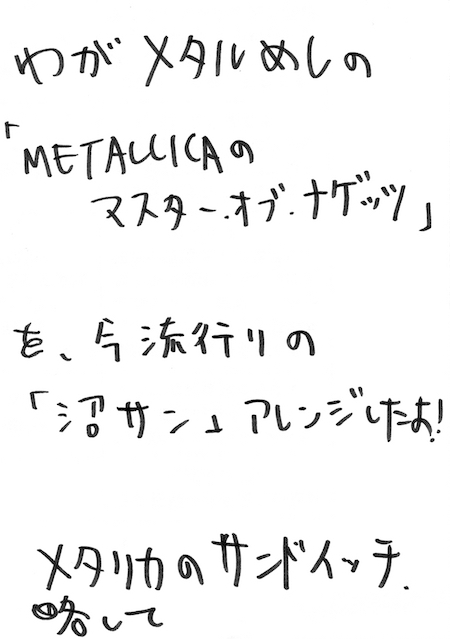 わがメタルめしの
「METALLICAの
マスター・オブ・ナゲッツ」
を、今流行りの
「沼サン」アレンジしたよ!
メタリカのサンドイッチ.
略して